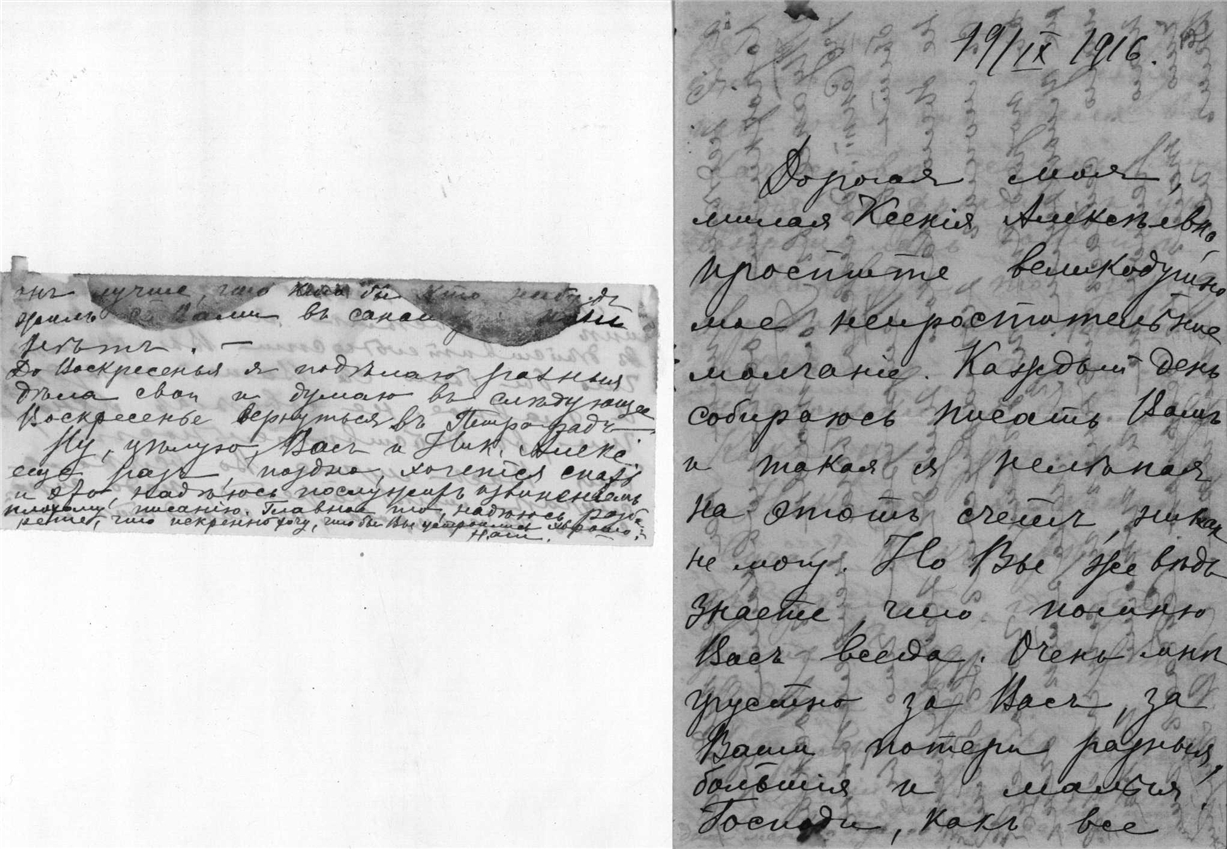 онъ лучше, что кто нибудь
жилъ съ Вами въ
нетъ. —
До Воскресенья я подѣлаю разныя
дѣла свои и думаю въ слѣдующее
Воскресенье вернуться въ Петроградъ
Ну, цѣлую Васъ и Ник. Алекс.
еще разъ, поздно, хочется спать
и это, надѣюсь послужитъ извиненіемъ
плохому писанію. Главное то, надѣюсь разбе-
рете, что искренно хочу, чтобы Вы устроились хорошо.
19/IX 1916.
Дорогая моя,
милая Ксенія Алексѣевна
простите великодушно
мое непростительное
молчаніе. Каждый день
собираюсь писать Вамъ
и такая я нелѣпая
на этотъ счетъ, никак
не могу. Но Вы же вѣдь
знаете, что помню
Васъ всегда. Очень мнѣ
грустно за Васъ, за
Ваши потери разныя,
большія и малыя.
Господи, какъ все